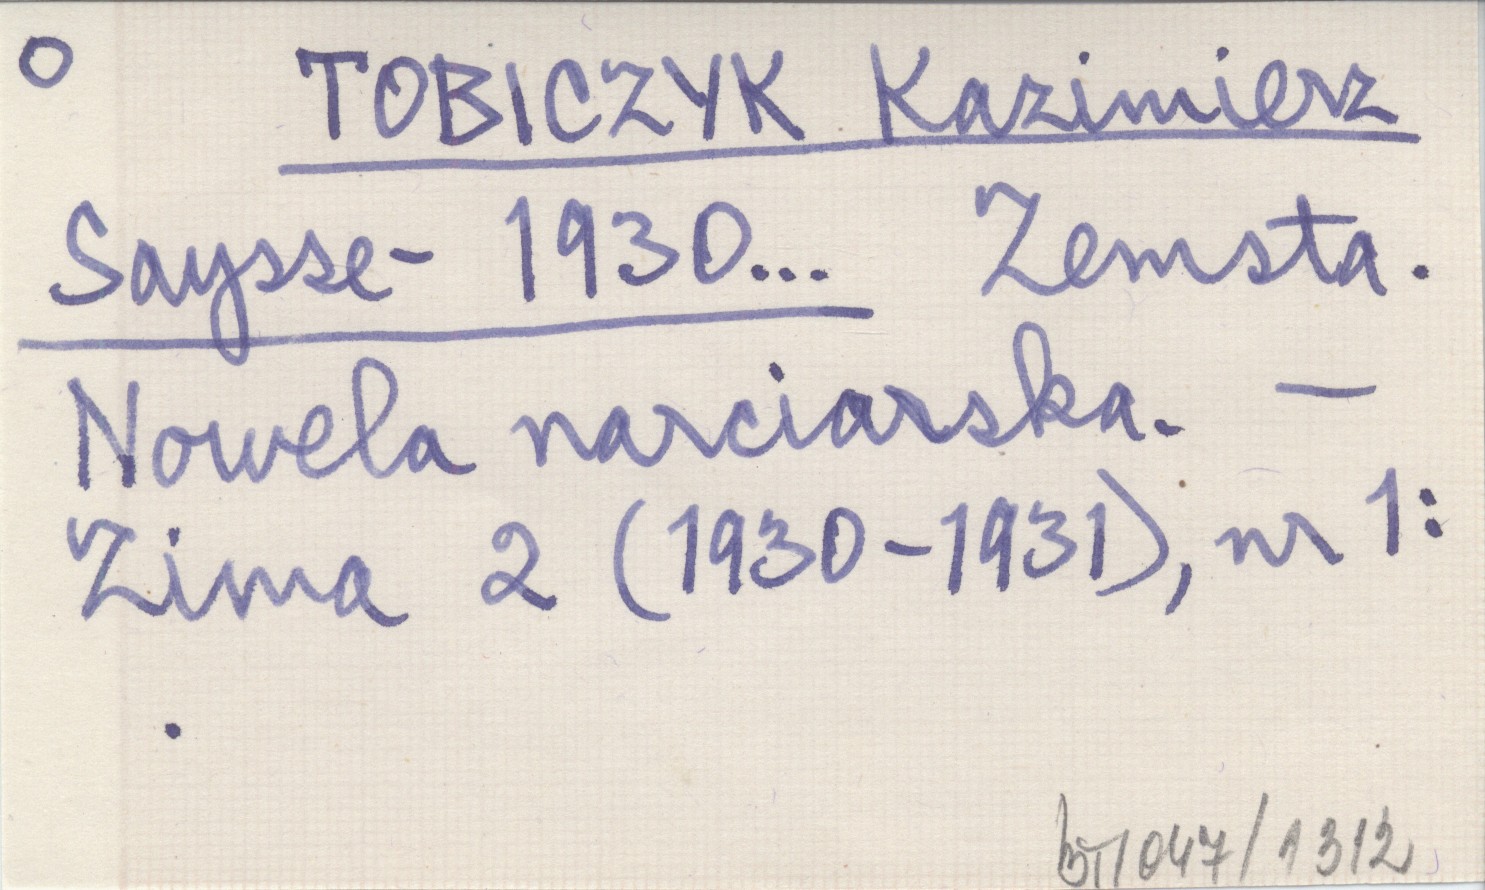 o TOBICZYK Kazimierz
Saysse- 1930... Zemsta.
Nowela narciarska. —
Zima 2 (1930-1931), nr 1:
.
/047/1312